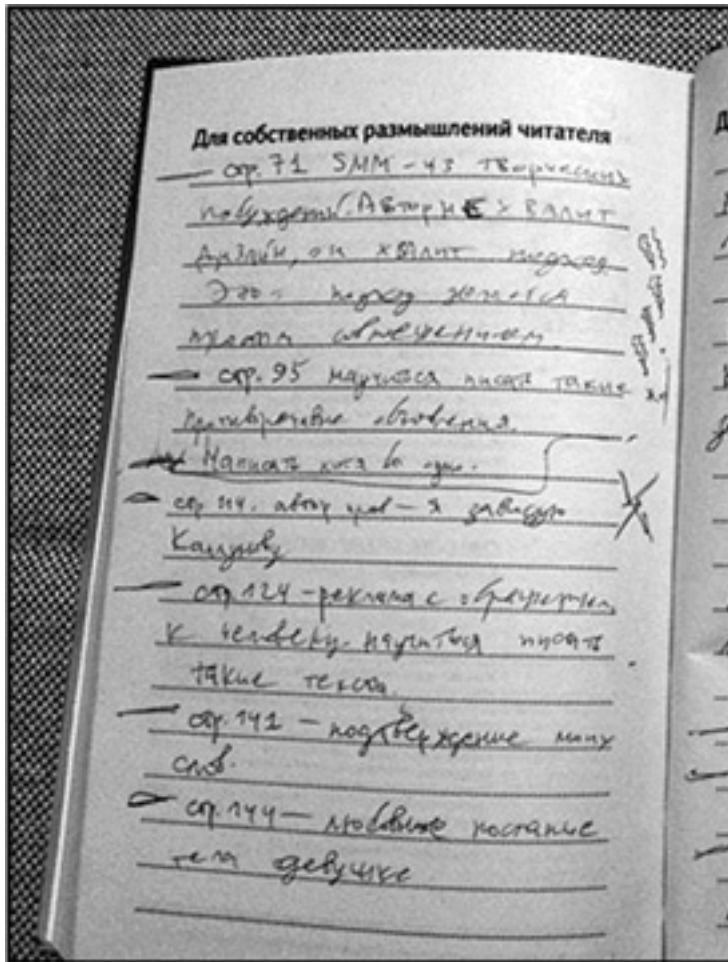 Для собственных размышлений читателя
— стр. 71 SMM – из творческих
побуждений. Автор НЕ хвалит
дизайн, он хвалит подход
Это – подход
— стр. 95 научиться писать такие
противоречивые объявления.
Написать хотя бы одно.
стр 114. автор прав – я завидую
— стр 124 – реклама с обращением
к человеку. научиться писать
такие тексты.
— стр. 141 – подтверждение моих
слов.
стр. 144 – любовное послание
тела девушке